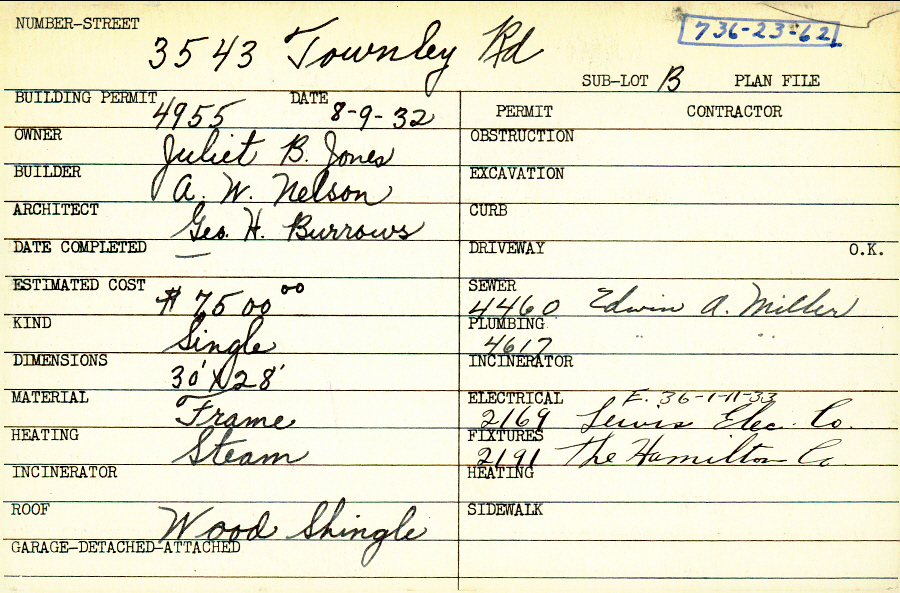 NUMBER-STREET
736-23-62
3543 Townley Rd
SUB-LOT B PLAN FILE
BUILDING PERMIT 4955 DATE 8-9-32
OWNER Juliet B. Jones
BUILDER A. W. Nelson
ARCHITECT Geo. H. Burrows
DATE COMPLETED —
ESTIMATED COST $7500 00
KIND Single
DIMENSIONS 30' X 28'
MATERIAL Frame
HEATING Steam
INCINERATOR
ROOF Wood Shingle
GARAGE-DETACHED-ATTACHED
PERMIT CONTRACTOR
OBSTRUCTION
EXCAVATION
CURB
DRIVEWAY O.K.
SEWER 4460 Edwin A. Miller
PLUMBING 4617 " "
INCINERATOR
ELECTRICAL F. 36-1-11-33
2169 Lewis Elec. Co.
FIXTURES 2191 The Hamilton Co
HEATING
SIDEWALK